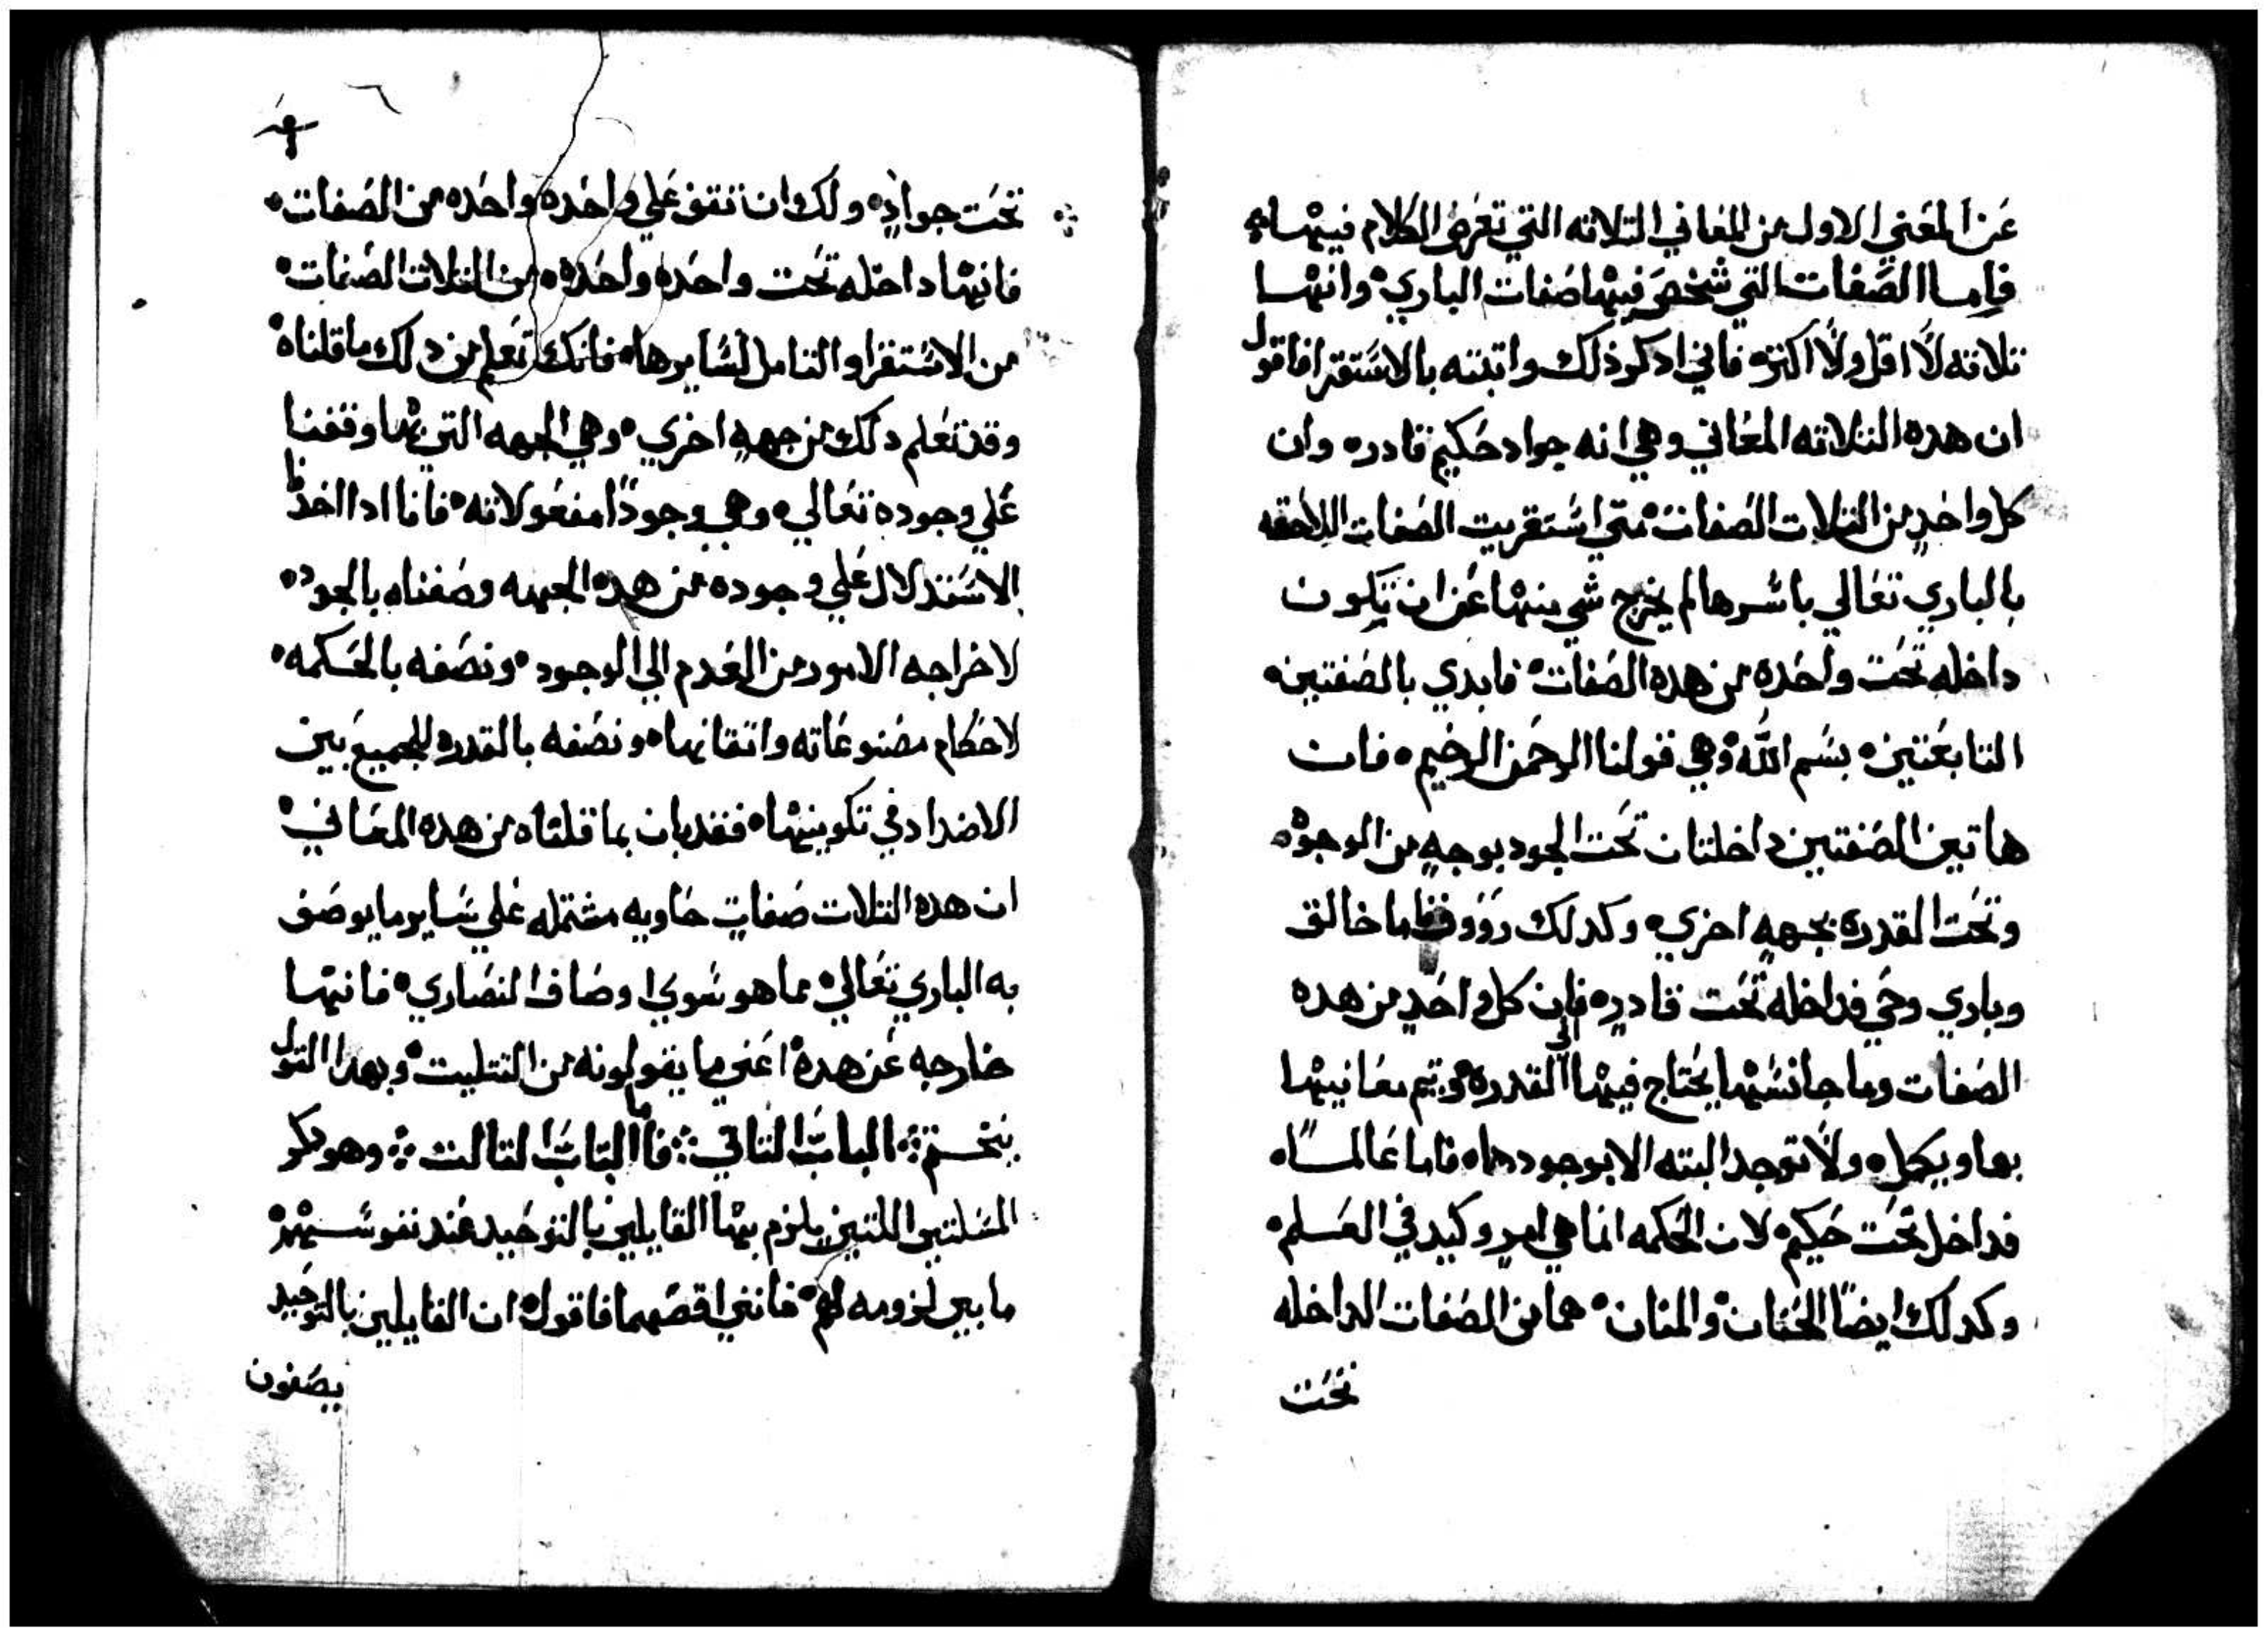 عن المعني الاول من المعاني التلاته التي تعرض الكلام فيها
فاما الصفات التي شخص فيها صفات الباري وانها
تلاته لا اقل ولا اكتر فاني ادكر ذلك واتبته بالاستقرا فاقول
ان هده التلاته المعاني وهي انه جواد حكيم قادر وان
كل واحد من التلات الصفات متي استقريت الصفات اللاحقه
بالباري تعالي باسرها لم يخرج شي منها عن ان تكون
داخله تحت واحده من هده الصفات فابدي بالصفتين
التابعتين بسم الله وهي قولنا الرحمن الرحيم فان
هاتين الصفتين داخلتان تحت الجود بوجه من الوجوه
وتحت القدره بجهه اخري وكدلك رووف فاما خالق
وباري وحي فداخله تحت قادر فان كل واحد من هده
الصفات وما جانسها يحتاج فيها الي القدره وتتم معانيها
بها ويكمل ولا توجد البته الا بوجودها فاما عالما
فداخل تحت حكيم لان الحكمه انما هي امر وكيد في العلم
وكدلك ايضا الحنان والمنان هما من الصفات الداخله
تحت
تحت جواد ولك ان تقف علي واحده واحده من الصفات
فانها داخله تحت واحده واحده من التلات الصفات
من الاستقرا والتامل لسايرها فانك تعلم من دلك ما قلناه
وقد تعلم دلك من جهه اخري وهي الجهه التي بها وقفنا
علي وجوده تعالي وهي وجود مفعولاته فانا ادا اخدنا
الاستدلال علي وجوده من هده الجهه وصفناه بالجود
لاخراجه الامور من العدم الي الوجود ونصفه بالحكمه
لاحكام مصنوعاته واتقانها ونصفه بالقدره للجميع بين
الاضداد في تكوينها فقد بان بما قلناه من هده المعاني
ان هده التلات صفات حاويه مشتمله علي ساير ما يوصف
به الباري تعالي مما هو سوي اوصاف النصاري فانها
خارجه عن هده اعني ما يقولونه من التتليت وبهدا القول
ينختم الباب التاني فاما الباب التالت وهو دكر
المسلتين اللتين يلزم بها القايلين بالتوحيد عند نفوسهم
ما بين لزومه لهم فانني اقصهما فاقول ان القايلين بالتوحيد
يصفون